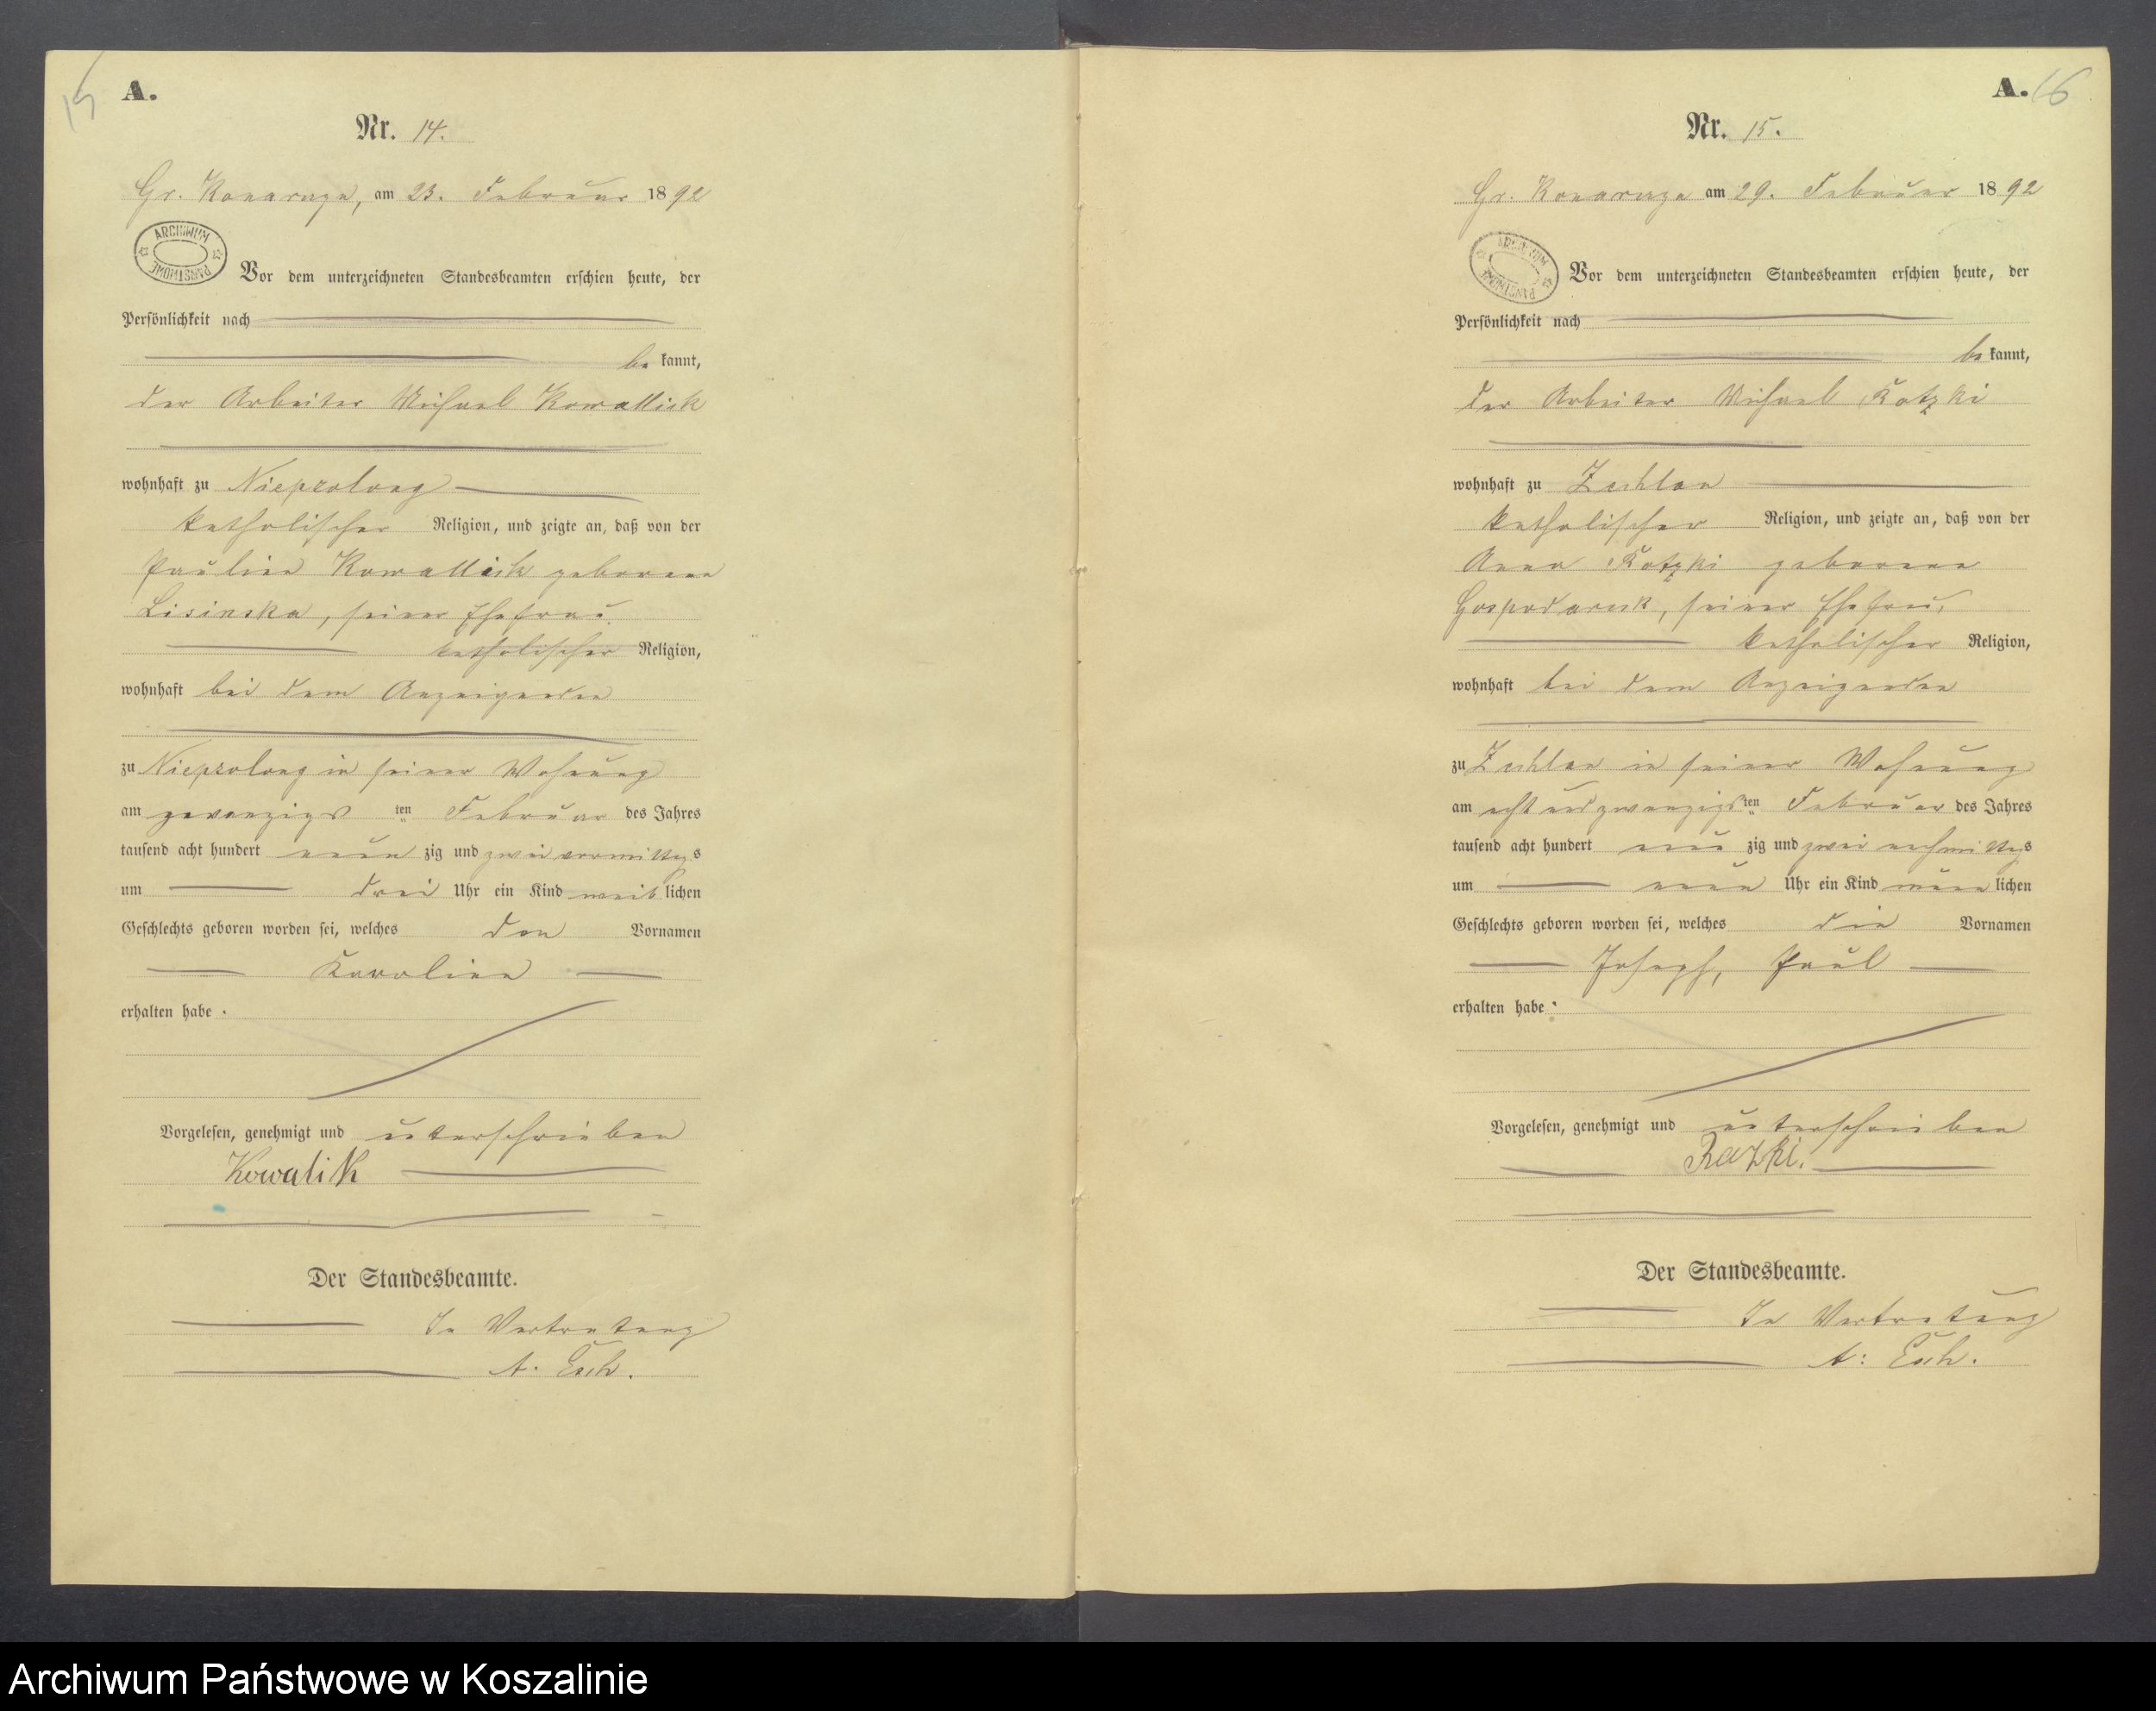 15
A.
Nr. 14.
Gr. Konarczyn, am 23. Februar 1892
ARCHIWUM PAŃSTWOWE
Vor dem unterzeichneten Standesbeamten erschien heute, der
Persönlichkeit nach
bekannt,
der Arbeiter Michael Kowallick
wohnhaft zu Niepszolong
katholischer Religion, und zeigte an, daß von der
Pauline Kowallick geborene
Lisinska, seiner Ehefrau
katholischer Religion,
wohnhaft bei dem Anzeigenden
zu Niepszolong in seiner Wohnung
am zwanzigsten Februar des Jahres
tausend acht hundert neunzig und zwei vormittags
um drei Uhr ein Kind weiblichen
Geschlechts geboren worden sei, welches den Vornamen
Karoline
erhalten habe.
Vorgelesen, genehmigt und unterschrieben
Kowalik
Der Standesbeamte.
In Vertretung
A. Esch.
A. 16
Nr. 15.
Gr. Konarczyn am 29. Februar 1892
ARCHIWUM PAŃSTWOWE
Vor dem unterzeichneten Standesbeamten erschien heute, der
Persönlichkeit nach
bekannt,
der Arbeiter Michael Ratzki
wohnhaft zu Zechlau
katholischer Religion, und zeigte an, daß von der
Anna Ratzki geborene
Gospodarek, seiner Ehefrau,
katholischer Religion,
wohnhaft bei dem Anzeigenden
zu Zechlau in seiner Wohnung
am acht und zwanzigsten Februar des Jahres
tausend acht hundert neunzig und zwei nachmittags
um neun Uhr ein Kind männlichen
Geschlechts geboren worden sei, welches die Vornamen
Joseph, Paul
erhalten habe.
Vorgelesen, genehmigt und unterschrieben
Razki.
Der Standesbeamte.
In Vertretung
A: Esch.
Archiwum Państwowe w Koszalinie